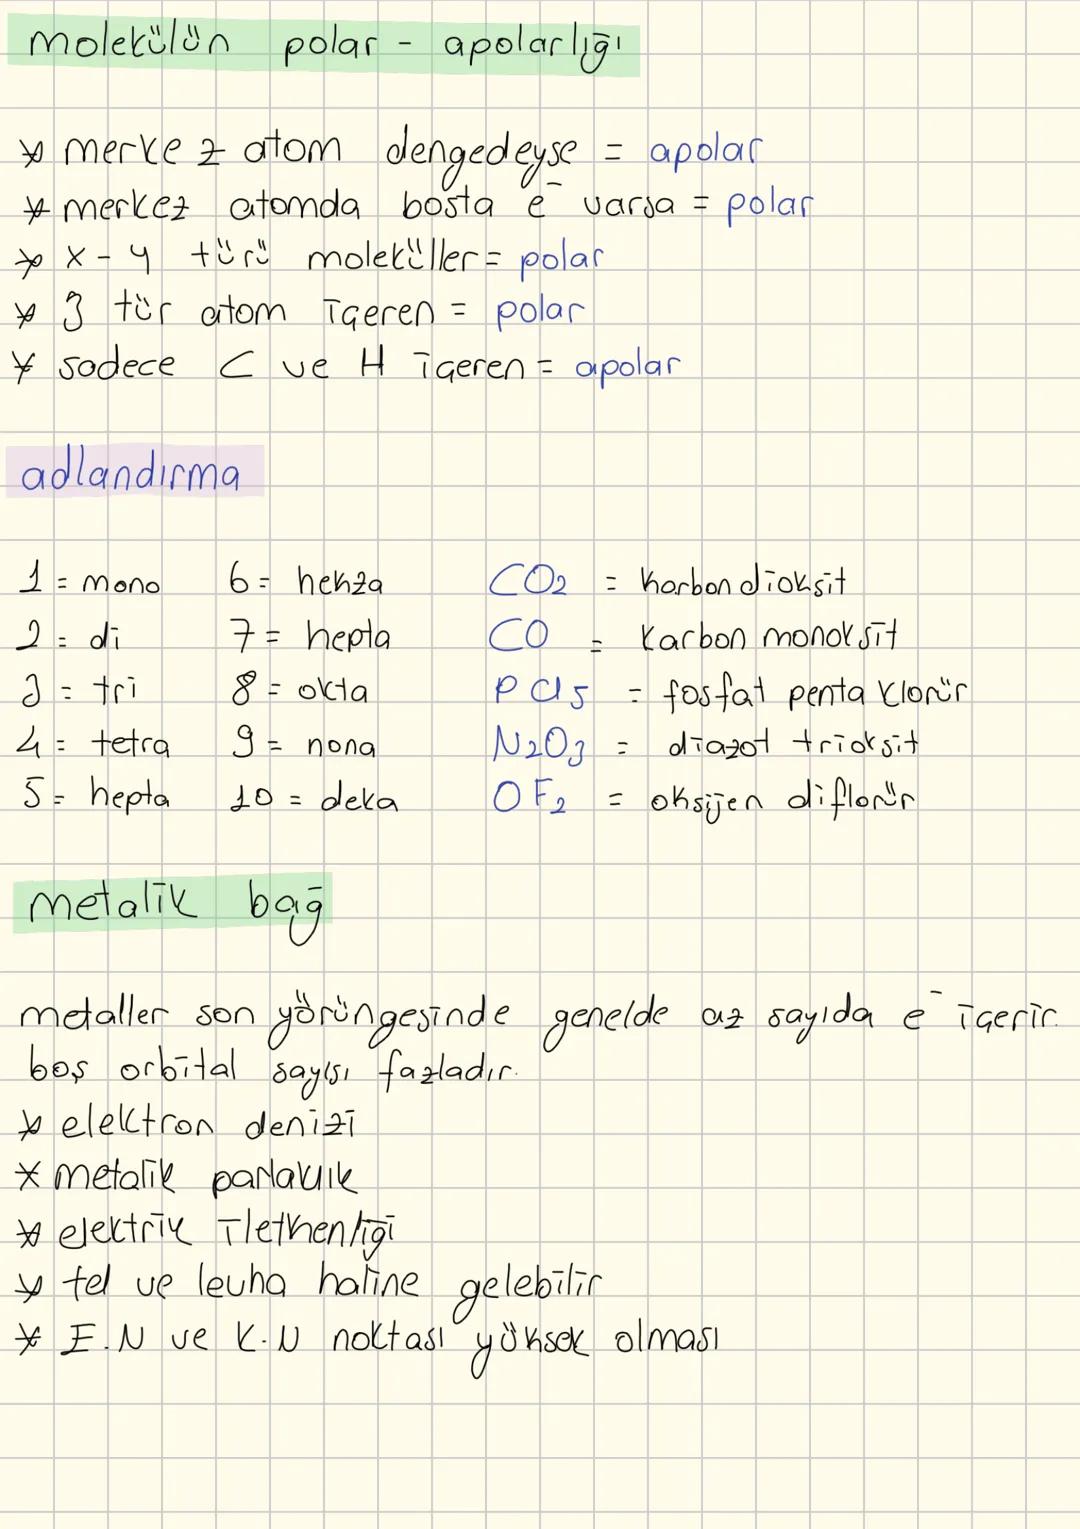 molekülün polar - apolarlığı
* merkez atom dengedeyse = apolar
* merkez atomda boşta e⁻ varsa = polar
* x - y türü moleküller = polar
* 3 tür atom içeren = polar
* sadece C ve H içeren = apolar
adlandırma
1 = mono 6 = hekza CO₂ = karbondioksit
2 = di 7 = hepta CO = karbon monoksit
3 = tri 8 = okta PCl₅ = fosfat penta klorür
4 = tetra 9 = nona N₂O₃ = diazot trioksit
5 = hepta 10 = deka OF₂ = oksijen diflorür
metalik bağ
metaller son yörüngesinde genelde az sayıda e⁻ içerir.
boş orbital sayısı fazladır.
* elektron denizi
* metalik parlaklık
* elektrik iletkenliği
* tel ve levha haline gelebilir
* E.N ve K.N noktası yüksek olması